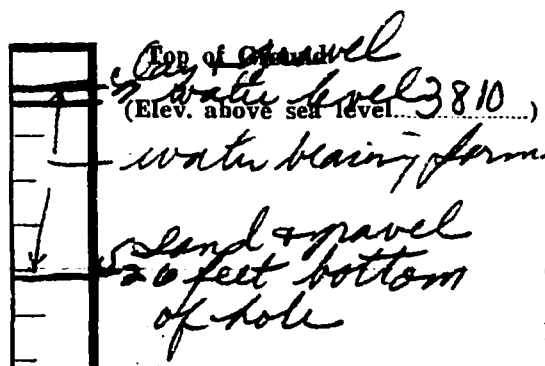 Top of Ground
Clay & gravel
water level
(Elev. above sea level...3810...)
water bearing form.
sand & gravel
26 feet bottom
of hole